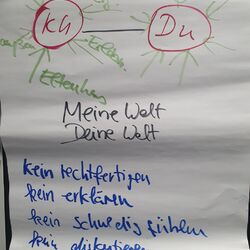 Du
Elternhaus
Meine Welt
Deine Welt
kein rechtfertigen
kein erklären
kein schuldig fühlen
kein diskutieren